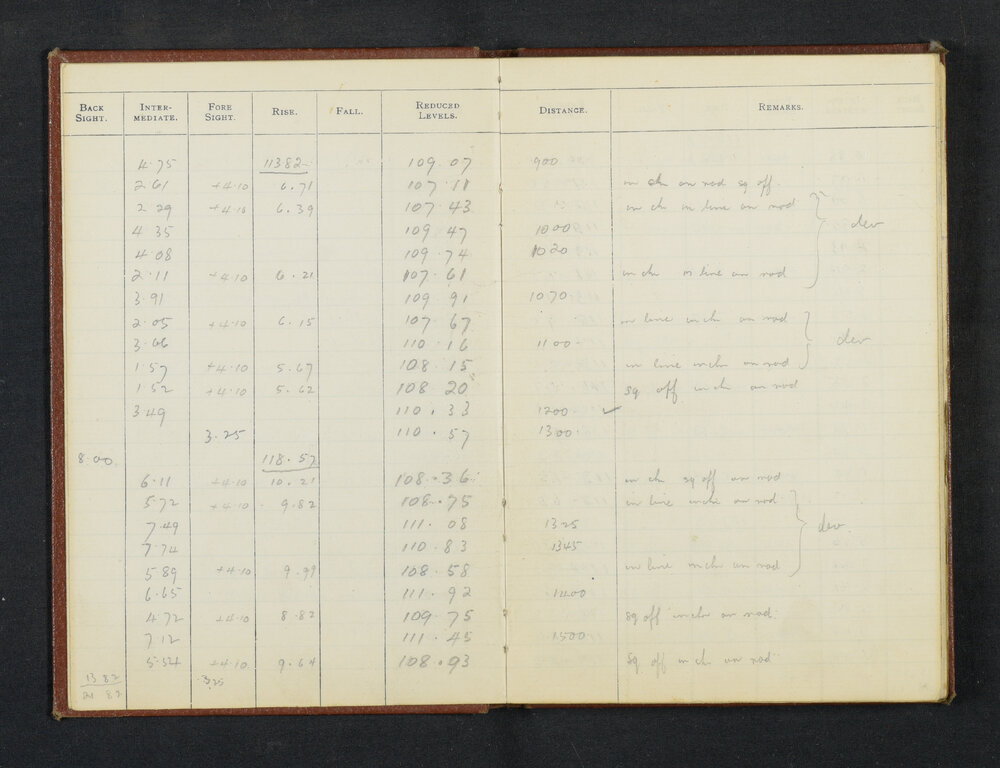 BACK SIGHT. INTER-MEDIATE. FORE SIGHT. RISE. FALL. REDUCED LEVELS. DISTANCE. REMARKS.
4.75 113.82 109.07 900
2.61 +4.10 6.71 107.11 in ch on rod sq off
2.29 +4.10 6.39 107.43 in ch in line on rod
4.35 109.47 1000 dev
4.08 109.74 1020
2.11 +4.10 6.21 107.61 in ch in line on rod
3.91 109.91 1070
2.05 +4.10 6.15 107.67 in line in ch on rod
3.66 110.16 1100 dev
1.57 +4.10 5.67 108.15 in line in ch on rod
1.52 +4.10 5.62 108.20 sq off in ch on rod
3.49 110.33 1200 ✓
3.25 110.57 1300
8.00 118.57
6.11 +4.10 10.21 108.36 in ch sq off on rod
5.72 +4.10 9.82 108.75 in line in ch on rod
7.49 111.08 1325 dev.
7.74 110.83 1345
5.89 +4.10 9.99 108.58 in line in ch on rod
6.65 111.92 1400
4.72 +4.10 8.82 109.75 sq off in ch on rod
7.12 111.45 1500
5.54 +4.10 9.64 108.93 sq off in ch on rod
13 82 3.25
21 82